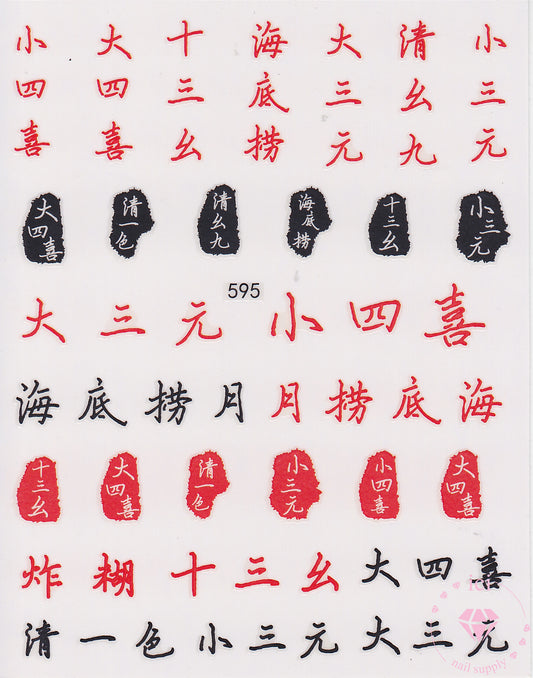 小四喜
大四喜
十三幺
海底捞
大三元
清幺九
小三元
大四喜
清一色
清幺九
海底捞
十三幺
小三元
595
大三元小四喜
海底捞月月捞底海
十三幺
大四喜
清一色
小三元
小四喜
大四喜
炸糊十三幺大四喜
清一色小三元大三元
nail supply